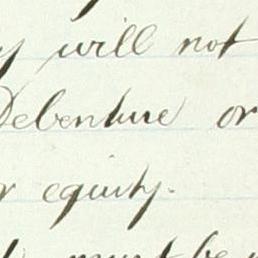 y will not
Debenture or
r equity.
must be